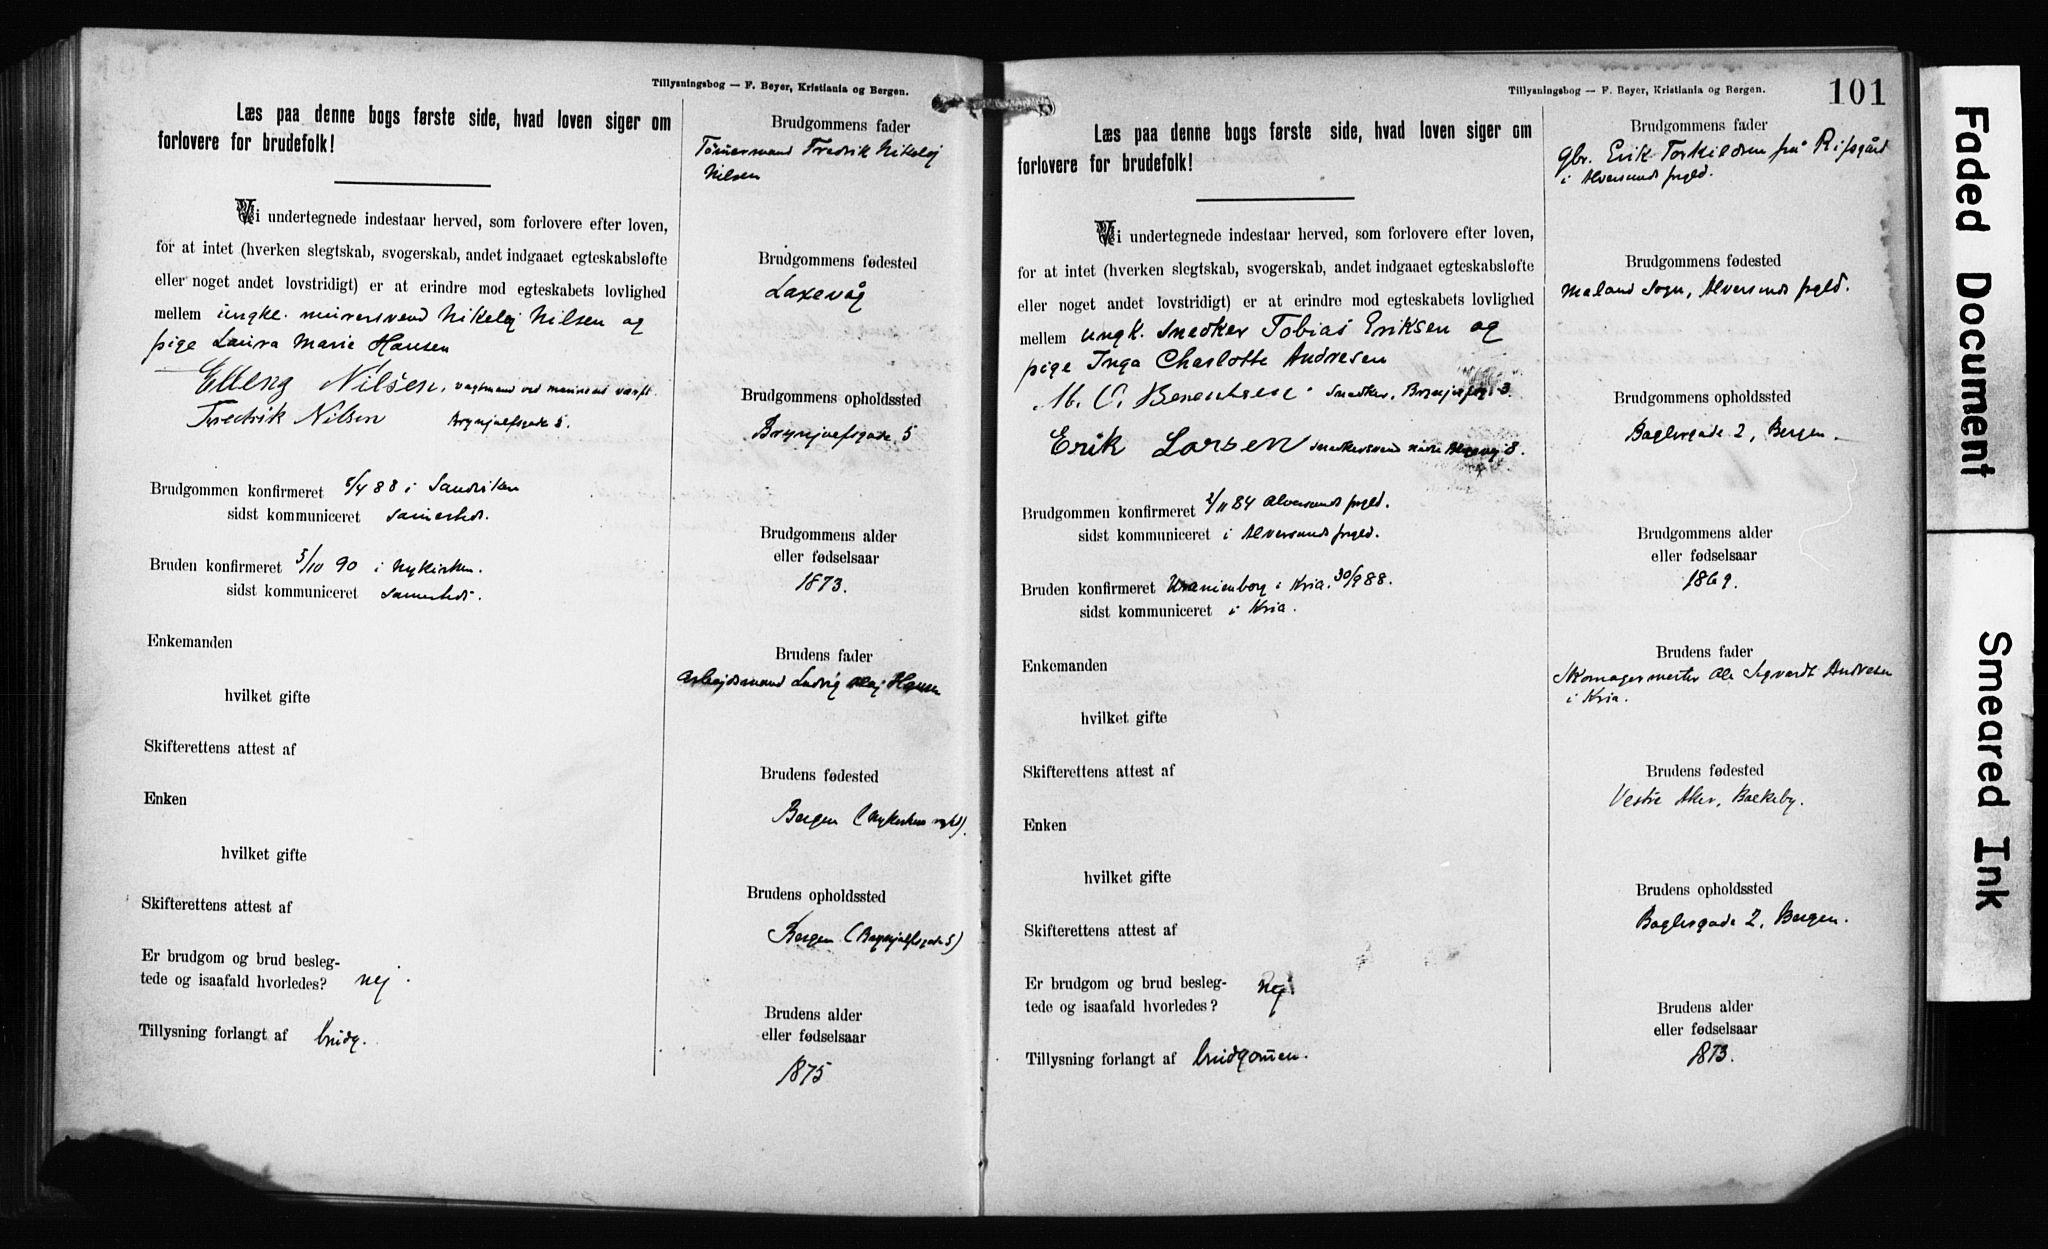 Tillysningsbog — F. Beyer, Kristiania og Bergen.
Læs paa denne bogs første side, hvad loven siger om
forlovere for brudefolk!
Vi undertegnede indestaar herved, som forlovere efter loven,
for at intet (hverken slegtskab, svogerskab, andet indgaaet egteskabsløfte
eller noget andet lovstridigt) er at erindre mod egteskabets lovlighed
mellem ungk. mursvend Nikolaj Nilsen og
pige Laura Marie Hansen
Elleng Nilsen, vagtmand ved marinens værft.
Fredrik Nilsen Brynjulfsgade 5.
Brudgommen konfirmeret 8/4 88 i Sandviken
sidst kommuniceret samesteds.
Bruden konfirmeret 5/10 90 i Nykirken.
sidst kommuniceret samesteds.
Enkemanden
hvilket gifte
Skifterettens attest af
Enken
hvilket gifte
Skifterettens attest af
Er brudgom og brud besleg-
tede og isaafald hvorledes? nej.
Tillysning forlangt af brudg.
Brudgommens fader
Tømmermand Fredrik Nikolaj
Nilsen
Brudgommens fødested
Laxevåg
Brudgommens opholdssted
Brynjulfsgade 5
Brudgommens alder
eller fødselsaar
1873.
Brudens fader
Arbejdsmand Ludvig Olaj Hansen
Brudens fødested
Bergen (Nykirkens sogn).
Brudens opholdssted
Bergen (Brynjulfsgade 5)
Brudens alder
eller fødselsaar
1875
Tillysningsbog — F. Beyer, Kristiania og Bergen.
101
Læs paa denne bogs første side, hvad loven siger om
forlovere for brudefolk!
Vi undertegnede indestaar herved, som forlovere efter loven,
for at intet (hverken slegtskab, svogerskab, andet indgaaet egteskabsløfte
eller noget andet lovstridigt) er at erindre mod egteskabets lovlighed
mellem ungk. Snedker Tobias Eriksen og
pige Inga Charlotte Andresen
M. O. Snedker,
Erik Larsen Snedkersvend 8.
Brudgommen konfirmeret 2/11 84 Alversunds prgld.
sidst kommuniceret i Alversunds prgld.
Bruden konfirmeret Uranienborg i Kria. 30/9 88.
sidst kommuniceret i Kria.
Enkemanden
hvilket gifte
Skifterettens attest af
Enken
hvilket gifte
Skifterettens attest af
Er brudgom og brud besleg-
tede og isaafald hvorledes? Nej.
Tillysning forlangt af brudgommen.
Brudgommens fader
Gbr. Erik Torkildsen på Rifsgård
i Alversunds prgld.
Brudgommens fødested
Meland Sogn, Alversunds prgld.
Brudgommens opholdssted
Baglergade 2, Bergen.
Brudgommens alder
eller fødselsaar
1869.
Brudens fader
Skomagermester Ole Sigvardt Andresen
i Kria.
Brudens fødested
Vestre Aker, Bakkeby.
Brudens opholdssted
Baglergade 2, Bergen.
Brudens alder
eller fødselsaar
1873.
Faded Document
Smeared Ink